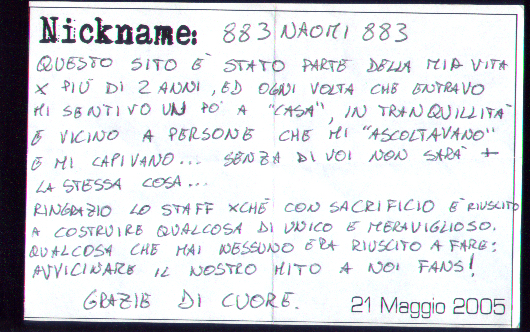 Nickname: 883 NAOMI 883
QUESTO SITO È STATO PARTE DELLA MIA VITA
X PIÙ DI 2 ANNI, ED OGNI VOLTA CHE ENTRAVO
MI SENTIVO UN PO' A "CASA", IN TRANQUILLITÀ
E VICINO A PERSONE CHE MI "ASCOLTAVANO"
E MI CAPIVANO... SENZA DI VOI NON SARÀ +
LA STESSA COSA...
RINGRAZIO LO STAFF XCHÉ CON SACRIFICIO È RIUSCITO
A COSTRUIRE QUALCOSA DI UNICO E MERAVIGLIOSO.
QUALCOSA CHE MAI NESSUNO ERA RIUSCITO A FARE:
AVVICINARE IL NOSTRO MITO A NOI FANS!
GRAZIE DI CUORE. 21 Maggio 2005